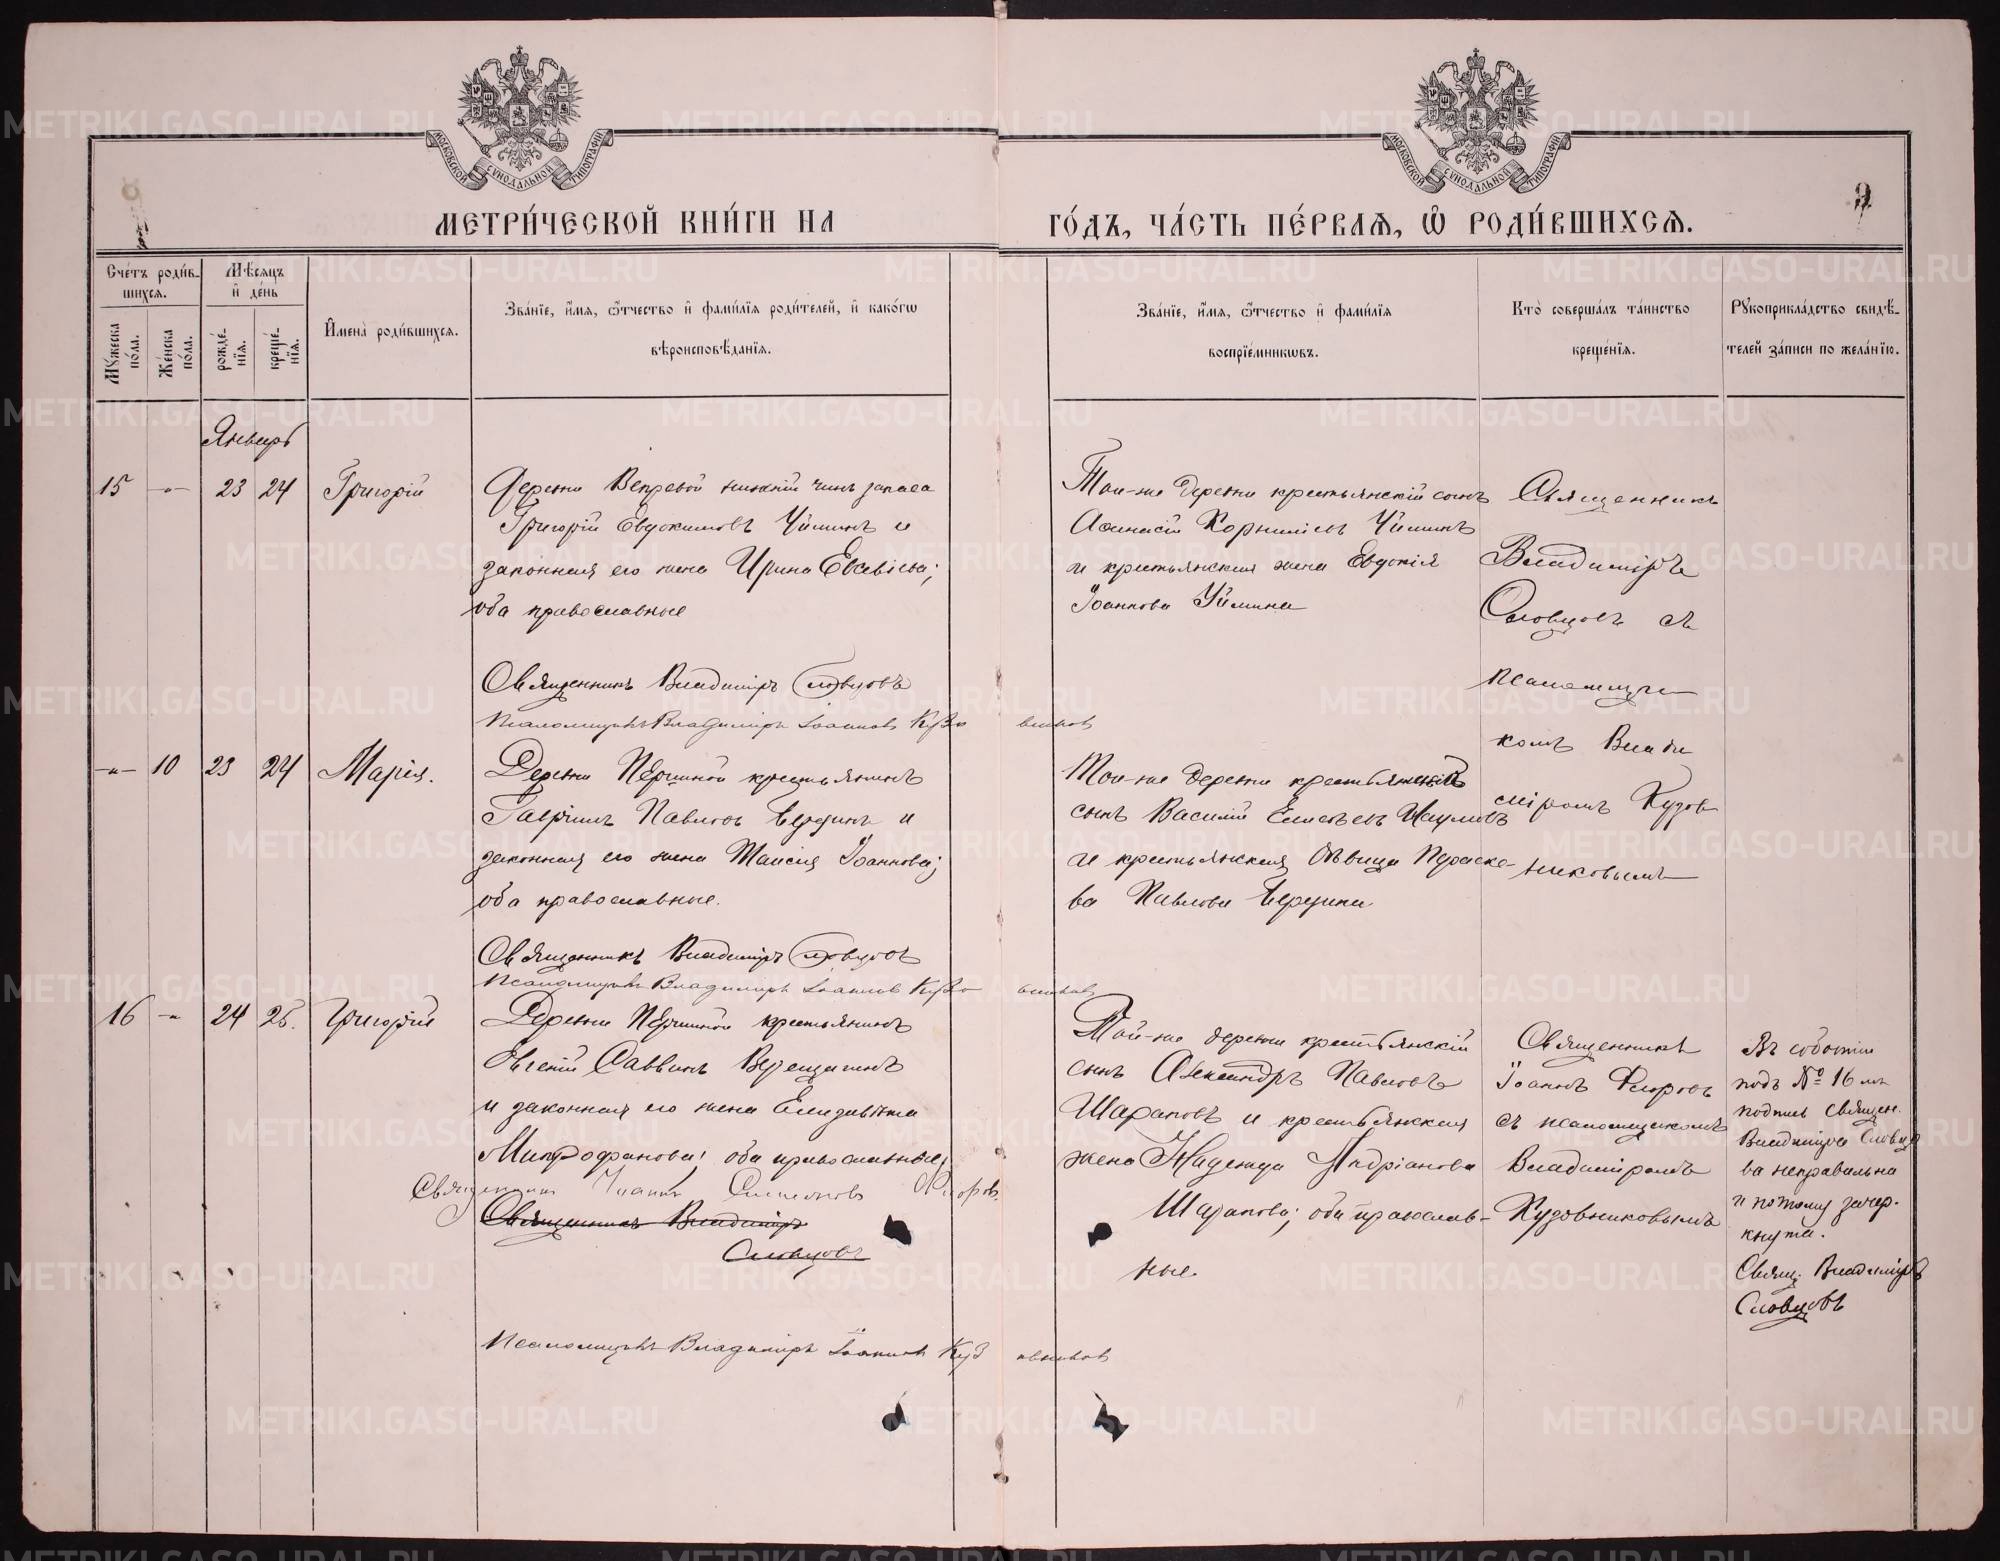 МОСКОВСКОЙ СѴНОДАЛЬНОЙ ТИПОГРАФІИ
МОСКОВСКОЙ СѴНОДАЛЬНОЙ ТИПОГРАФІИ
МЕТРИ́ЧЕСКОЙ КНИ́ГИ НА
ГО́ДЪ, ЧА́СТЬ ПЕ́РВАЯ, Ѡ҆ РОДИ́ВШИХСЯ.
9
Сче́тъ роди́в-
шихся.
Мꙋ́жеска по́ла.
Же́нска по́ла.
Мѣ́сяцъ
и҆ де́нь
рожде́-
нїя.
креще́-
нїя.
И҆мена̀ роди́вшихся.
Зва́нїе, и҆́мя, ѻ҆́тчество и҆ фами́лїя роди́телей, и҆ како́гѡ
вѣроисповѣ́данїя.
Зва́нїе, и҆́мя, ѻ҆́тчество и҆ фами́лїя
воспрїе́мникѡвъ.
Кто̀ соверша́лъ та́инство
креще́нїя.
Рꙋкоприкла́дство свидѣ́-
телей за́писи по жела́нїю.
Январь
15 -"- 23 24 Григорій
Деревни Вепревой нижній чинъ запаса
Григорій Евдокимовъ Уйминъ и
законная его жена Ирина Евсевіева;
оба православные
Священникъ Владиміръ Словцовъ
Псаломщикъ Владиміръ Іоанновъ Кузовниковъ
Той-же деревни крестьянскій сынъ
Аѳанасій Корниліевъ Уйминъ
и крестьянская жена Евдокія
Іоаннова Уймина
Священникъ
Владиміръ
Словцовъ съ
псаломщи-
комъ Влади
міромъ Кузов
никовымъ
-"- 10 23 24 Марія.
Деревни Першиной крестьянинъ
Гавріилъ Павловъ
законная его жена Таисія Іоаннова;
оба православные.
Священникъ Владиміръ Словцовъ
Псаломщикъ Владиміръ Іоанновъ Кузовниковъ
Той-же деревни крестьянскій
сынъ Василій Елисѣевъ Наумовъ
и крестьянская дѣвица Параске-
ва Павлова
16 -"- 24 25. Григорій
Деревни Першиной крестьянинъ
Евгеній Саввинъ Верещагинъ
и законная его жена Елизавета
Митрофанова; оба православные;
Священникъ Іоаннъ Флоровъ.
Священникъ Владиміръ
Словцовъ
Псаломщикъ Владиміръ Іоанновъ Кузовниковъ
Той-же деревни крестьянскій
сынъ Александръ Павловъ
Шараповъ и крестьянская
жена Надежда Андріанова
Шарапова; оба православ-
ные.
Священникъ
Іоаннъ Флоровъ
съ псаломщикомъ
Владиміромъ
Кузовниковымъ
Въ событіи
подъ № 16-мъ
подпись священ.
Владиміра Словцо
ва неправильна
и потому зачер-
кнута.
Свящ. Владиміръ
Словцовъ
METRIKI.GASO-URAL.RU